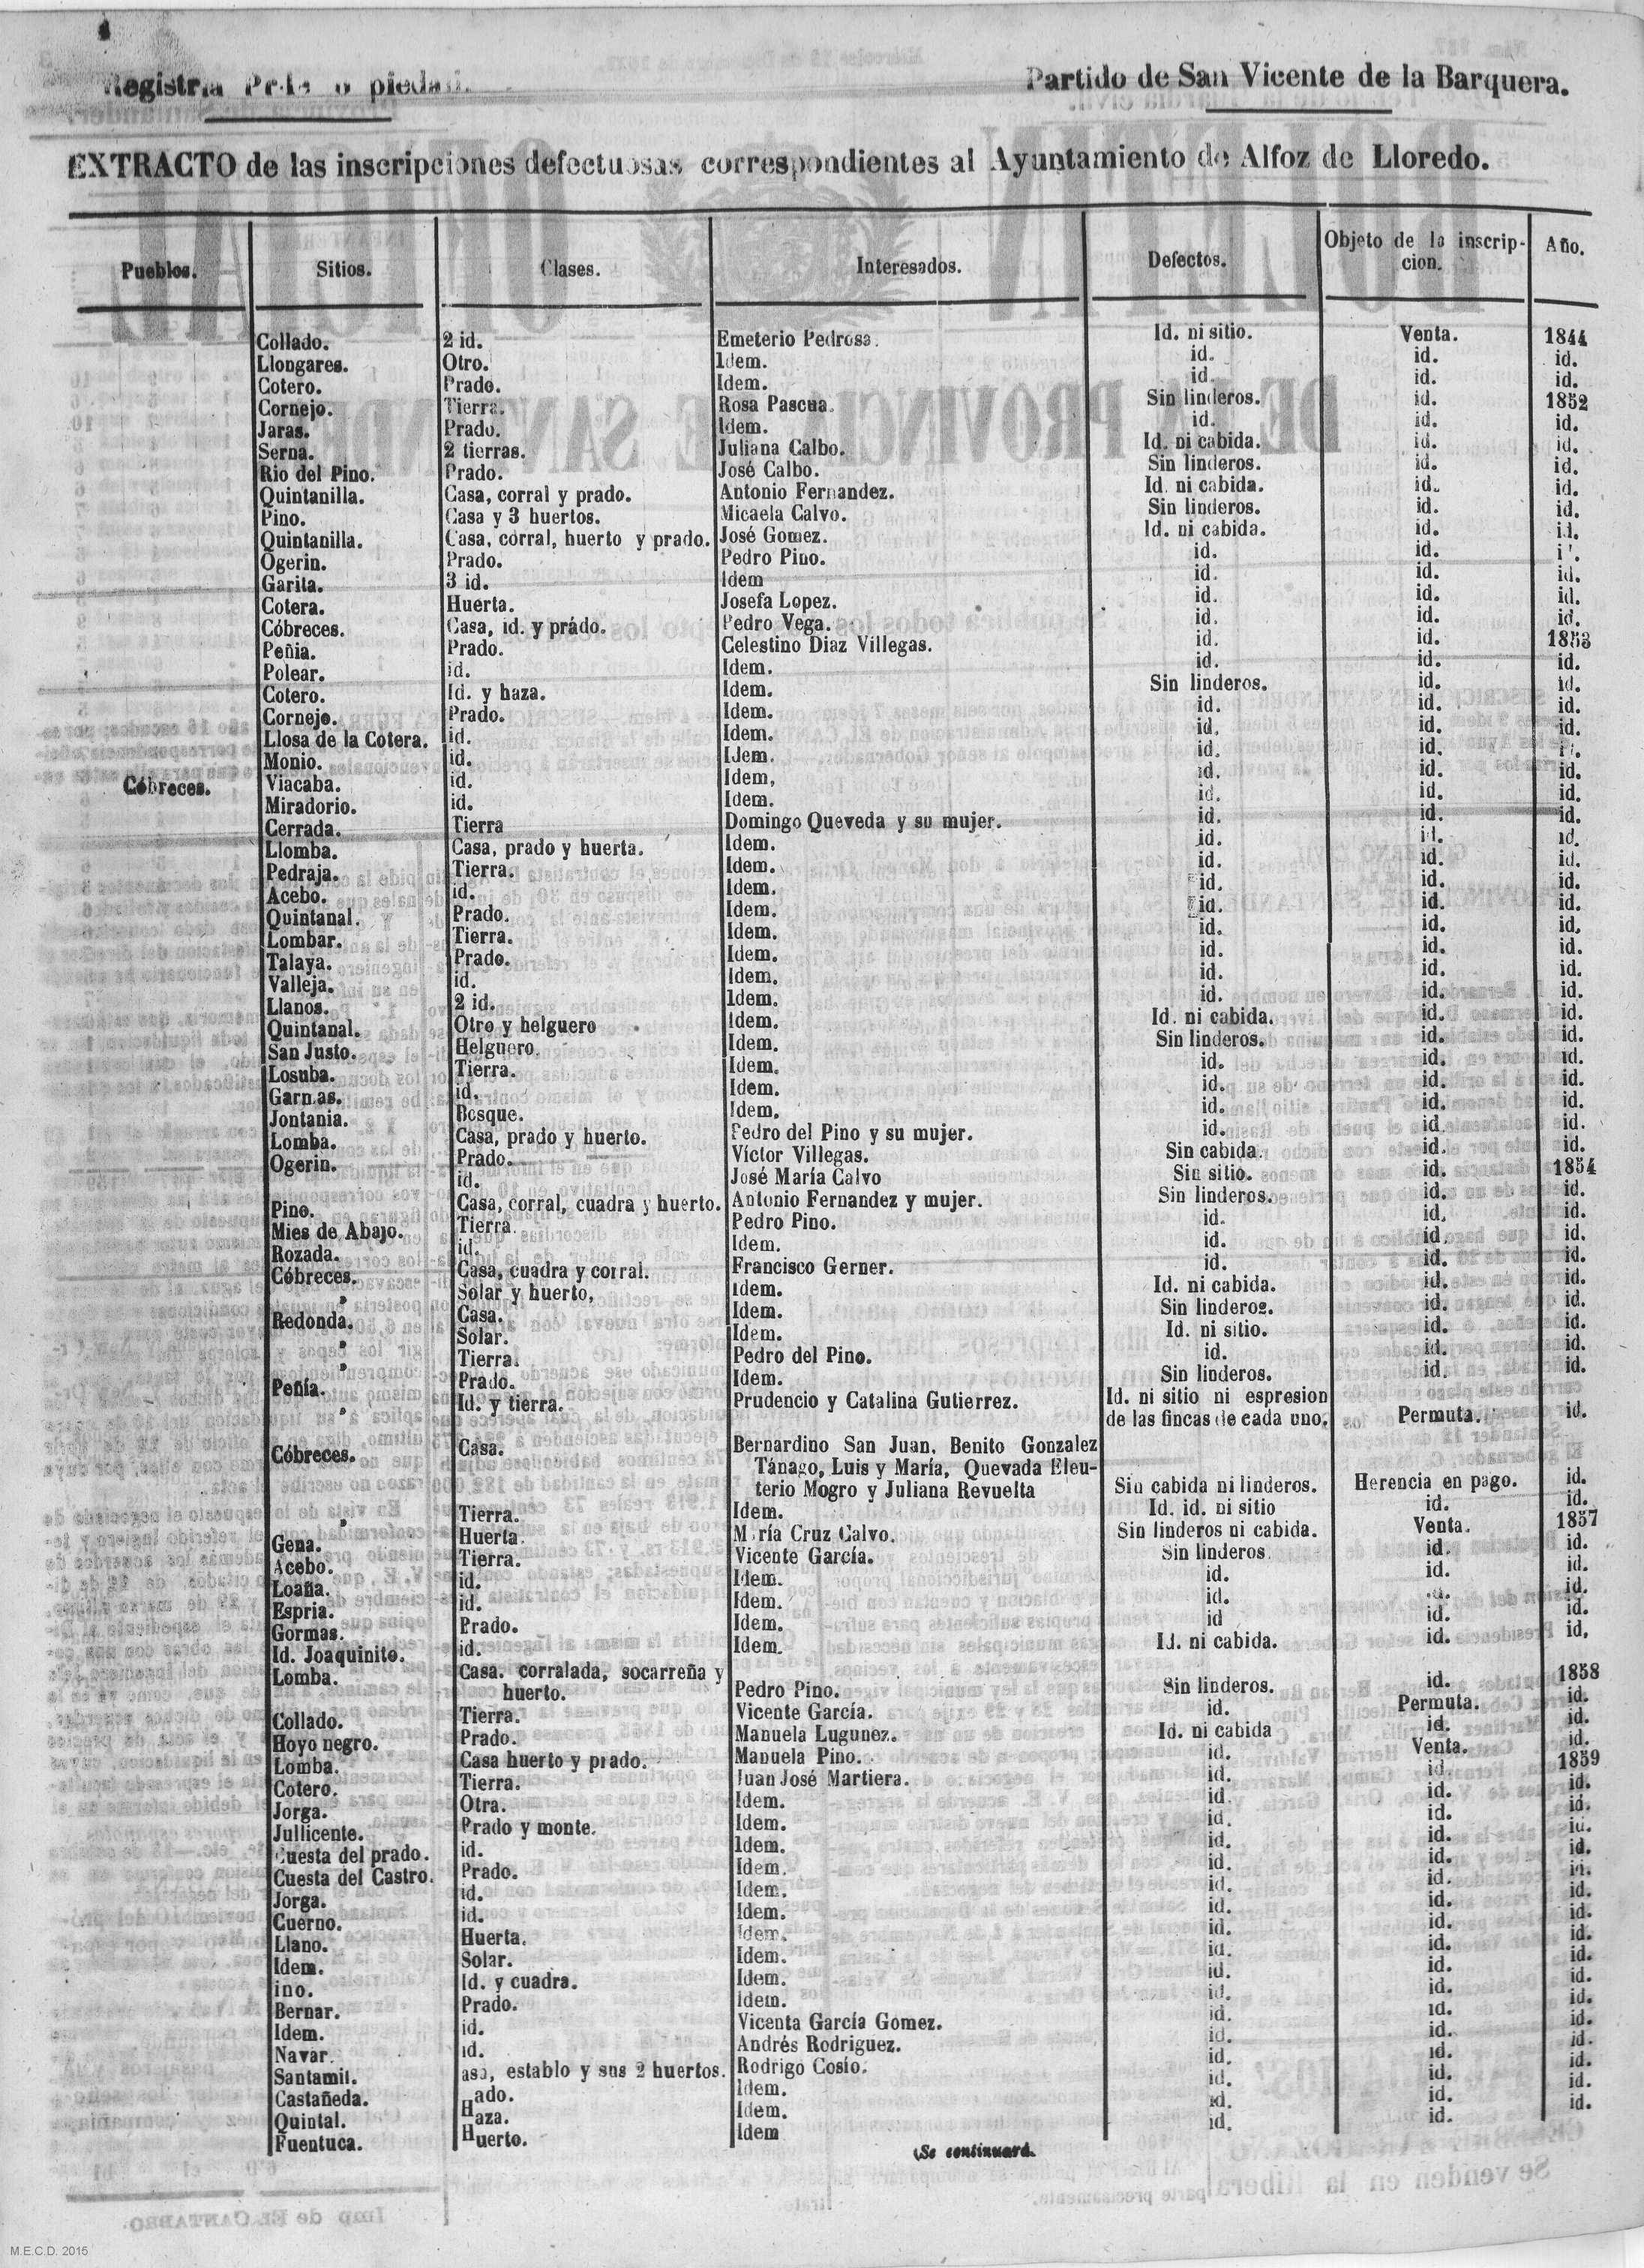 Registr Pr piedad.
Partido de San Vicente de la Barquera.
EXTRACTO de las inscripciones defectuosas correspondientes al Ayuntamiento de Alfoz de Lloredo.
Pueblos. Sitios. Clases. Interesados. Defectos. Objeto de la inscrip- Año.
cion.
Collado. 2 id. Emeterio Pedrosa. Id. ni sitio. Venta. 1844
Llongares. Otro. Idem. id. id. id.
Cotero. Prado. Idem. id. id. id.
Cornejo. Tierra. Rosa Pascua. Sin linderos. id. 1852
Jaras. Prado. Idem. id. id. id.
Serna. 2 tierras. Juliana Calbo. Id. ni cabida. id. id.
Rio del Pino. Prado. José Calbo. Sin linderos. id. id.
Quintanilla. Casa, corral y prado. Antonio Fernandez. Id. ni cabida. id. id.
Pino. Casa y 3 huertos. Micaela Calvo. Sin linderos. id. id.
Quintanilla. Casa, corral, huerto y prado. José Gomez. Id. ni cabida. id. id.
Ogerin. Prado. Pedro Pino. id. id.
Garita. 3 id. Idem id. id. id.
Cotera. Huerta. Josefa Lopez. id. id. id.
Cóbreces. Casa, id. y prado. Pedro Vega. id. id. id.
Peñia. Prado. Celestino Diaz Villegas. id. id. 1853
Polear. id. Idem. id. id. id.
Cotero. Id. y haza. Idem. Sin linderos. id. id.
Cornejo. Prado. Idem. id. id. id.
Llosa de la Cotera. id. Idem. id. id. id.
Monio. id. Idem. id. id.
Cóbreces. Viacaba. id. Idem, id. id. id.
Miradorio. id. Idem. id. id. id.
Cerrada. Tierra Domingo Queveda y su mujer. id. id. id.
Llomba. Casa, prado y huerta. Idem. id. id. id.
Pedraja. Tierra. Idem. id. id. id.
Acebo. id. Idem. id. id. id.
Quintanal. Prado. Idem. id. id. id.
Lombar. Tierra. Idem. id. id. id.
Talaya. Prado. Idem. id. id. id.
Valleja. id. Idem. id. id. id.
Llanos. 2 id. Idem. id. id. id.
Quintanal. Otro y helguero Idem. Id. ni cabida. id. id.
San Justo. Helguero. Idem. Sin linderos. id. id.
Losuba. Tierra. Idem. id. id. id.
Garn.as. id. Idem. id. id. id.
Jontania. Bosque. Idem. id. id. id.
Lomba. Casa, prado y huerto. Pedro del Pino y su mujer. id. id. id.
Ogerin. Prado. Víctor Villegas. Sin cabida. id. id.
id. José María Calvo Sin sitio. id. 1854
Pino. Casa, corral, cuadra y huerto. Antonio Fernandez y mujer. Sin linderos. id. id.
Mies de Abajo. Tierra. Pedro Pino. id. id. id.
Rozada. id. Idem. id. id. id.
Cóbreces. Casa, cuadra y corral. Francisco Gerner. id. id. id.
, Solar y huerto, Idem. Id. ni cabida. id. id.
Redonda. Casa. Idem. Sin linderos. id. id.
, Solar. Idem. Id. ni sitio. id. id.
, Tierra. Pedro del Pino. id. id. id.
Peñía. Prado. Idem. Sin linderos. id. id.
, Id. y tierra. Prudencio y Catalina Gutierrez. Id. ni sitio ni espresion
de las fincas de cada uno. Permuta. id.
Cóbreces. Casa. Bernardino San Juan, Benito Gonzalez
Tánago, Luis y María, Quevada Eleu-
terio Mogro y Juliana Revuelta Sin cabida ni linderos. Herencia en pago. id.
, Tierra. Idem. Id. id. ni sitio id. id.
Gena. Huerta. María Cruz Calvo. Sin linderos ni cabida. Venta. 1857
Acebo. Tierra. Vicente García. Sin linderos. id. id.
Loaña. id. Idem. id. id. id.
Espria. id. Idem. id. id. id.
Gormas. Prado. Idem. id id. id.
Id. Joaquinito. id. Idem. Id. ni cabida. id. id.
Lomba. Casa. corralada, socarreña y
huerto. Pedro Pino. Sin linderos. id. 1858
Collado. Tierra. Vicente García. id. Permuta. id.
Hoyo negro. Prado. Manuela Lugunez. Id. ni cabida id. id.
Lomba. Casa huerto y prado. Manuela Pino. id. Venta. id.
Cotero. Tierra. Juan José Martiera. id. id. 1859
Jorga. Otra. Idem. id. id. id.
Jullicente. Prado y monte. Idem. id. id. id.
Cuesta del prado. id. Idem. id. id. id.
Cuesta del Castro. Prado. Idem. id. id. id.
Jorga. id. Idem. id. id. id.
Cuerno. id. Idem. id. id. id.
Llano. Huerta. Idem. id. id. id.
Idem. Solar. Idem. id. id. id.
ino. Id. y cuadra. Idem. id. id. id.
Bernar. Prado. Idem. id. id. id.
Idem. id. Vicenta García Gomez. id. id. id.
Navar. id. Andrés Rodriguez. id. id. id.
Santamil. asa, establo y sus 2 huertos. Rodrigo Cosío. id. id. id.
Castañeda. ado. Idem. id. id. id.
Quintal. Haza. Idem. id. id. id.
Fuentuca. Huerto. Idem id. id.
(Se continuará.
M.E.C.D. 2015